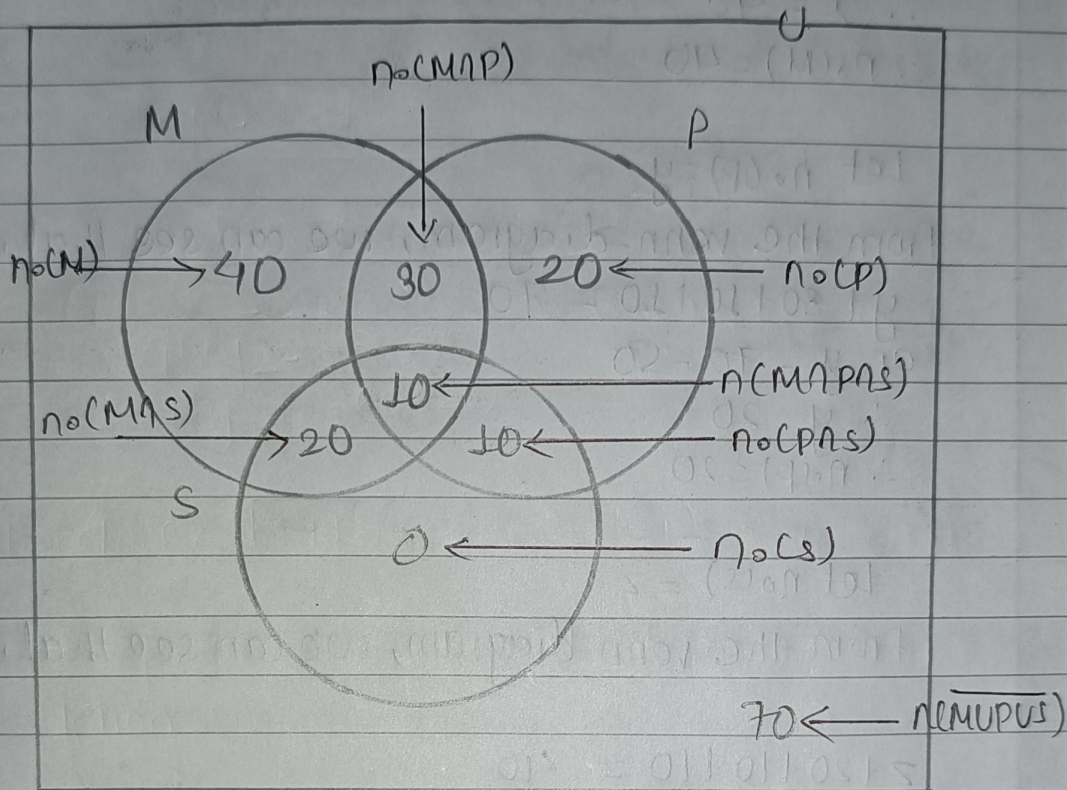 U
n₀(M∩P)
M
P
n₀(M)
40
30
20
n₀(P)
10
n(M∩P∩S)
n₀(M∩S)
20
10
n₀(P∩S)
S
0
n₀(S)
70
n(M∪P∪S)̅